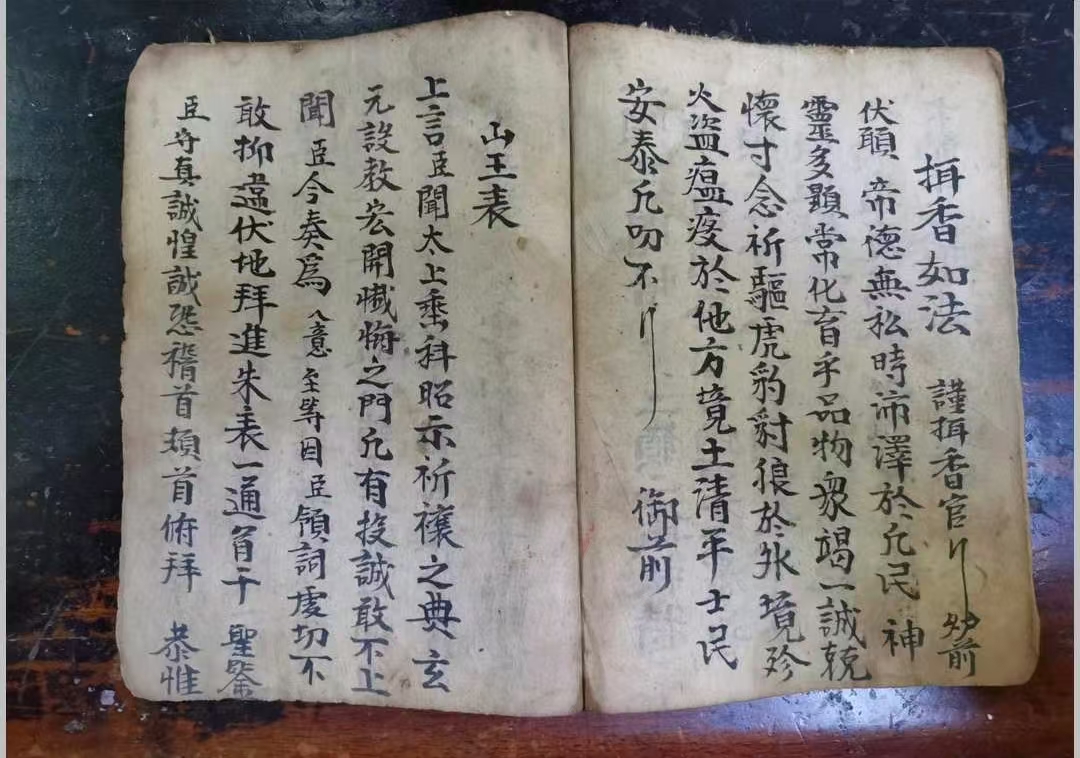 揖香如法 謹揖香官 前
伏願 帝德無私時沛澤於凢民 神
靈多顯常化育乎品物衆竭一誠兢
懷寸念祈驅虎豹豺狼於外境殄
火盜瘟疫於他方境土清平士民
安泰凢叨不 御前
山王表
上言臣聞太上垂科昭示祈禳之典玄
元設教宏開懺悔之門凢有投誠敢不上
聞臣今奏爲 入意至等因臣領詞虔切不
敢抑違伏地拜進朱表一通百干 聖鑒
臣守真誠惶誠恐稽首頓首俯拜 恭惟